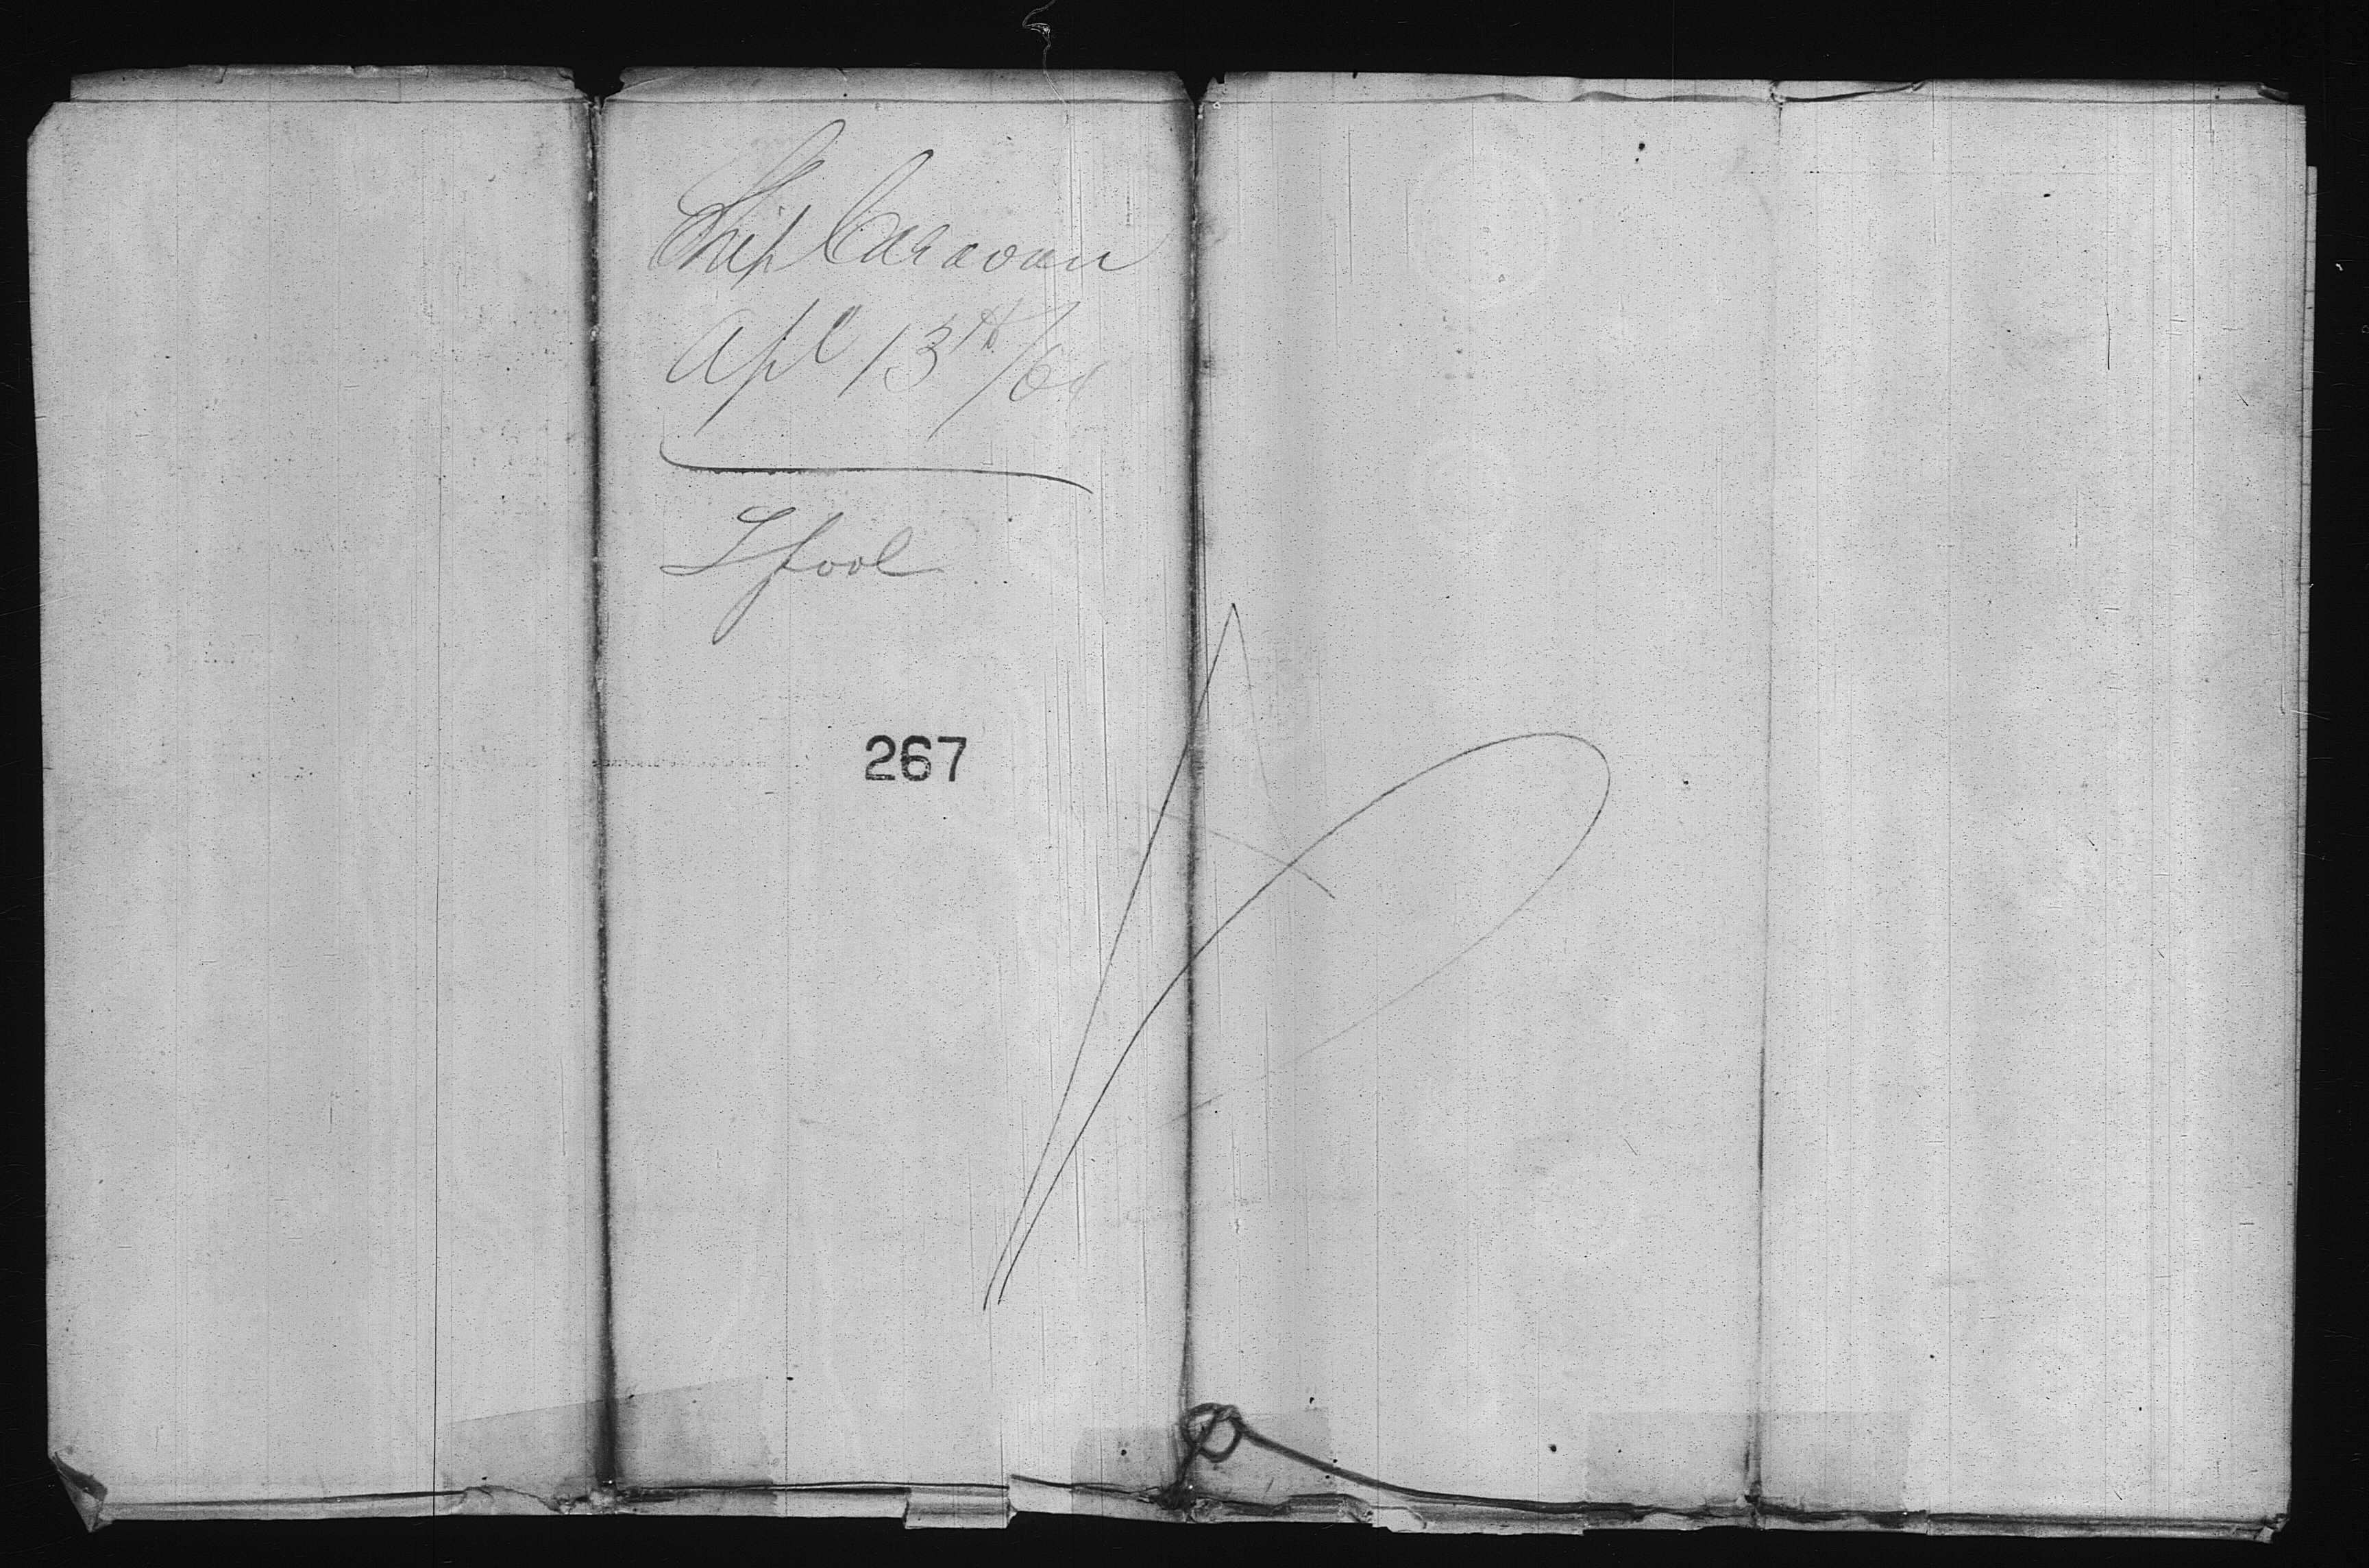 Ship Caravan
Apl 13th/64
Lpool
267